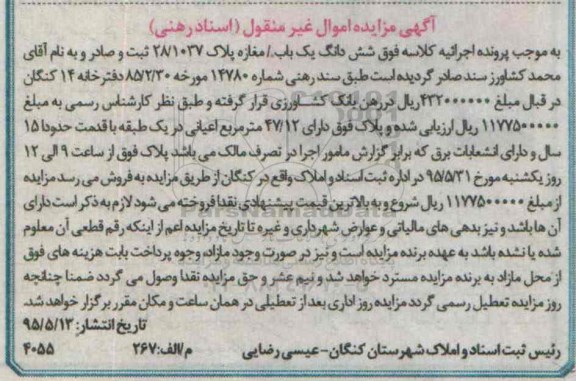 آگهی مزایده اموال غیر منقول (اسناد رهنی)
به موجب پرونده اجرائیه کلاسه فوق شش دانگ یک باب/ مغازه پلاک ۲۸/۱۰۳۷ ثبت و صادر و به نام آقای
محمد کشاورز سند صادر گردیده است طبق سند رهنی شماره ۱۴۷۸۰ مورخه ۸۵/۲/۳۰ دفترخانه ۱۴ کنگان
در قبال مبلغ ۴۳۲۰۰۰۰۰۰ ریال در رهن بانک کشاورزی قرار گرفته و طبق نظر کارشناس رسمی به مبلغ
۱۱۷۷۵۰۰۰۰۰ ریال ارزیابی شده و پلاک فوق دارای ۴۷/۱۲ مترمربع اعیانی در یک طبقه با قدمت حدودا ۱۵
سال و دارای انشعابات برق که برابر گزارش مامور اجرا در تصرف مالک می باشد پلاک فوق از ساعت ۹ الی ۱۲
روز یکشنبه مورخ ۹۵/۵/۳۱ در اداره ثبت اسناد و املاک واقع در کنگان از طریق مزایده به فروش می رسد مزایده
از مبلغ ۱۱۷۷۵۰۰۰۰۰ ریال شروع و به بالاترین قیمت پیشنهادی نقدا فروخته می شود لازم به ذکر است دارای
آن ها باشد و نیز بدهی های مالیاتی و عوارض شهرداری و غیره تا تاریخ مزایده اعم از اینکه رقم قطعی آن معلوم
شده یا نشده باشد به عهده برنده مزایده است و نیز در صورت وجود مازاد، وجوه پرداخت بابت هزینه های فوق
از محل مازاد به برنده مزایده مسترد خواهد شد و نیم عشر و حق مزایده نقدا وصول می گردد ضمنا چنانچه
روز مزایده تعطیل رسمی گردد مزایده روز اداری بعد از تعطیلی در همان ساعت و مکان مقرر برگزار خواهد شد.
تاریخ انتشار: ۹۵/۵/۱۳
رئیس ثبت اسناد و املاک شهرستان کنگان-عیسی رضایی م/الف: ۲۶۷ ۴۰۵۵
ParsNamadData